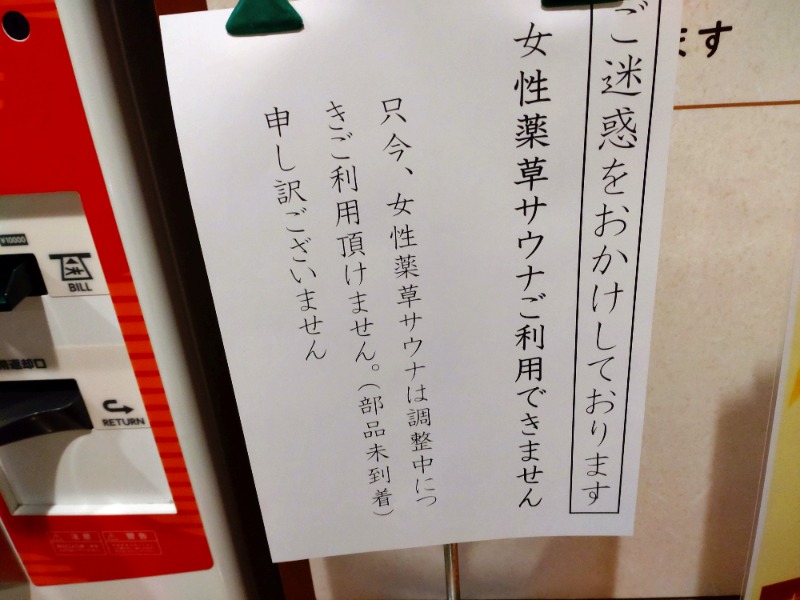 ご迷惑をおかけしております
女性薬草サウナご利用できません
只今、女性薬草サウナは調整中につ
きご利用頂けません。(部品未到着)
申し訳ございません
ます
¥10000
BILL
返却口
RETURN
注意
警告